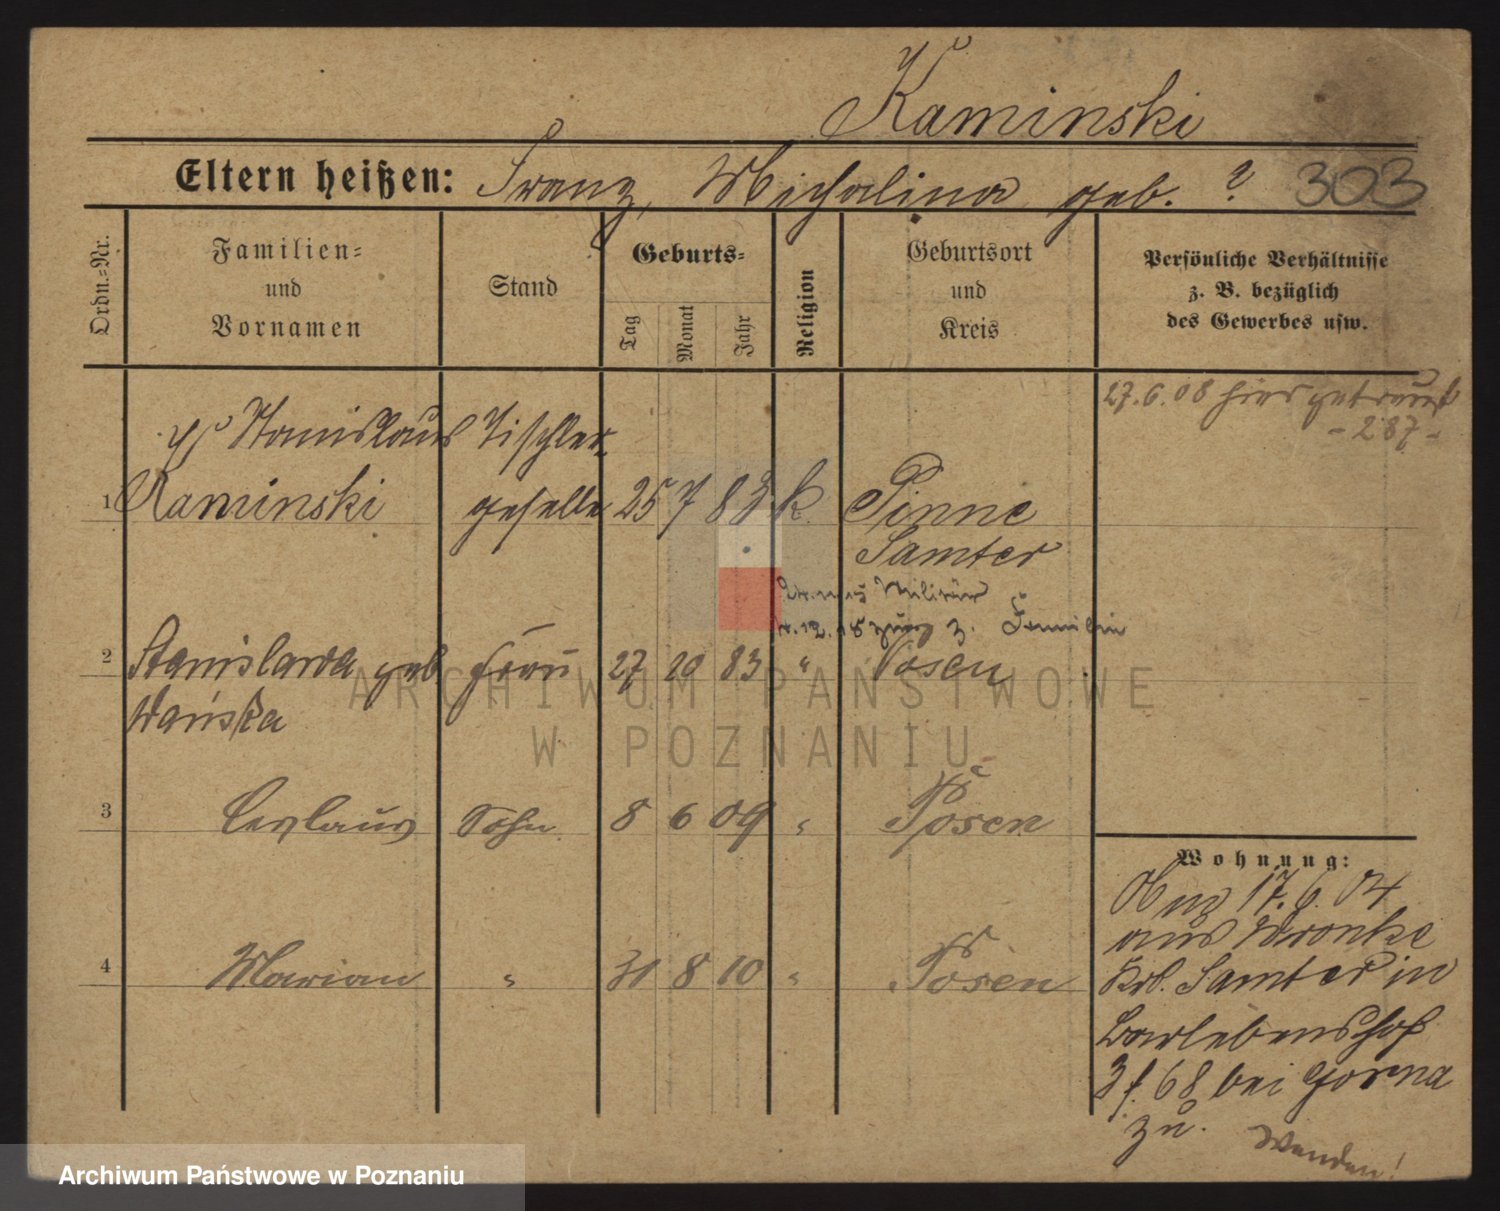 Kaminski
Eltern heißen: Franz, Michalina geb. ? 303
Ordn.-Nr.
Familien-
und
Vornamen
Stand
Geburts-
Tag
Monat
Jahr
Religion
Geburtsort
und
Kreis
Persönliche Verhältnisse
z. B. bezüglich
des Gewerbes usw.
27.6.08 hier getraut
- 287 -
Stanislaus Tischler-
1 Kaminski geselle 25 7 83 k. Pinne
Samter
Militär
z. Familie
2 Stanislawa geb Frau 27 10 83 " Posen
Wańska
3 Ceslaus Sohn 8 6 09 " Posen
4 Marian " 31 8 10 " Posen
Wohnung:
17.6.04
aus Wronke
Krs. Samter in
Barlebenshof
3 f. 68 bei Gorna
zu.
Wenden!
ARCHIWUM PAŃSTWOWE
W POZNANIU
Archiwum Państwowe w Poznaniu